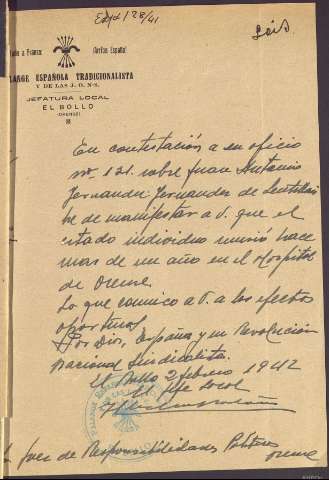 Expt 128/41
¡Arriba España!
FALANGE ESPAÑOLA TRADICIONALISTA
Y DE LAS J. O. N-S.
JEFATURA LOCAL
EL BOLLO
(ORENSE)
En contestación a su oficio
nº. 121. sobre Juan Antonio
Fernandez Fernandez de
he de manifestar a V. que el
citado individuo murió hace
mas de un año en el Hospital
de Orense.
Lo que comunico a V. a los efectos
oportunos.
Por Dios, España y su Revolución
Nacional Sindicalista.
El Bollo 2 febrero 1942
El Jefe Local
Juez de Responsabilidades Políticas
Orense